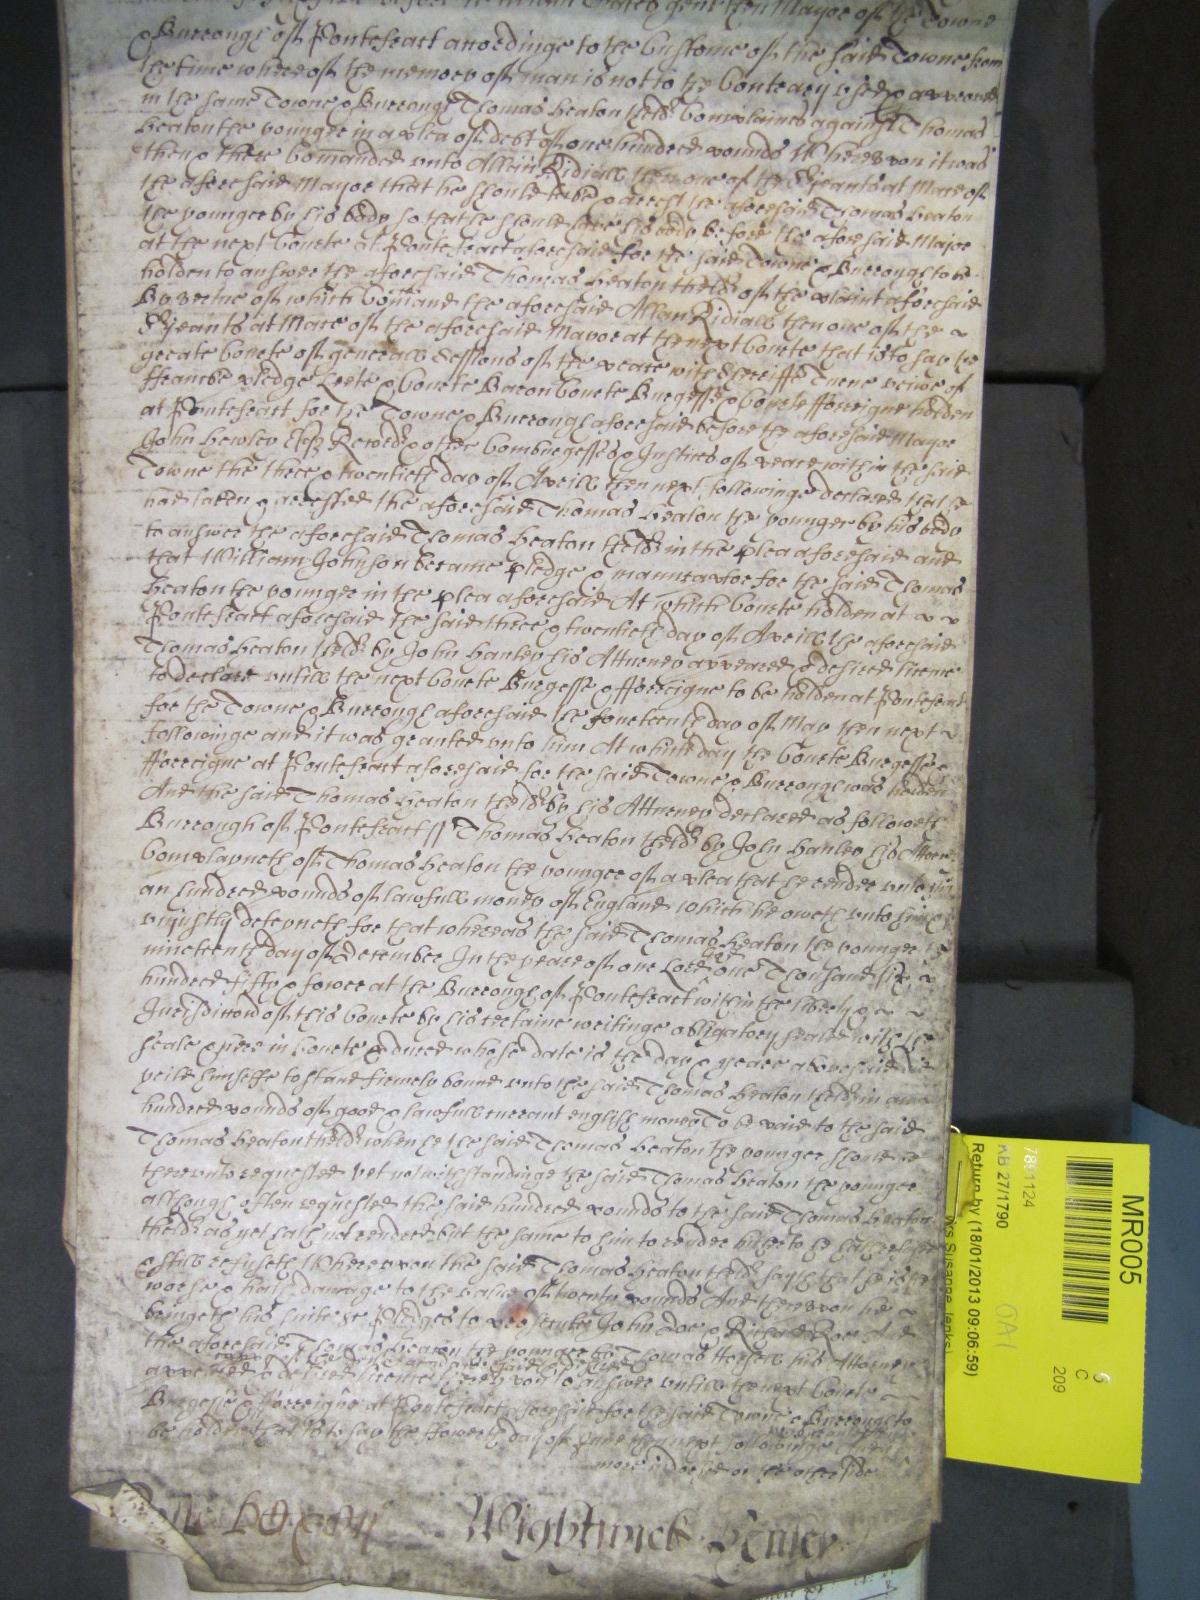 Mayor of the Towne
& Burrough of Pontefract accordinge to the Custome of the said Towne from
the time whereof the memory of man is not to the Contrary used & approved
in the same Towne & Burrough Thomas Heaton theld^r Complaines against Thomas
Heaton the younger in a plea of debt of one hundred pounds Whereupon it was
then & there Com̃anded unto Allan Ridiall then one of the S^rjeants at Mace of
the aforesaid Mayor that he should take & arrest the aforesaid Thomas Heaton
the younger by his body so that he should have his body before the aforesaid Major
at the next Courte at Pontefract aforesaid for the said Towne & Burrough to be
holden to answer the aforesaid Thomas Heaton theld^r of the plaint aforesaid
By vertue of which Com̃and the aforesaid Allan Ridiall then one of the
S^rjeants at Mace of the aforesaid Mayor at the next Courte that is to say the
greate Courte of generall Sessions of the peace with Sherriffe Turne veiwe of
ffrancke pledge Leete & Courte Baron Courte Burgesse & Courte fforreigne holden
at Pontefract for the Towne & Burrough aforesaid before the aforesaid Mayor
John Hewley Esq^r Record^r & other Comburgesses & Justices of peace within the said
Towne the three & twentieth day of Aprill then next followinge declared that he
had taken & arrested the aforesaid Thomas Heaton the younger by his body
to answer the aforesaid Thomas Heaton theld^r in the plea aforesaid and
that William Johnson became pledge & manucaptor for the said Thomas
Heaton the younger in the plea aforesaid At which Courte holden at
Pontefract aforesaid the said three & twentieth day of Aprill the aforesaid
Thomas Heaton theld^r by John Hanley his Attorney appeared & desired licence
to declare untill the next Courte Burgesse & fforreigne to be holden at Pontefract
for the Towne & Burrough aforesaid the fourteenth day of May then next
followinge and it was granted unto him At which day the Courte Burgesse &
fforreigne at Pontefract aforesaid for the said Towne & Burrough was holden
And the said Thomas Heaton theld^r by his Atturney declared as followeth
Burrough of Pontefract ss Thomas Heaton theld^r by John Hanley his Attorn^
Complayneth of Thomas Heaton the younger of a plea that he render unto him
an hundred pounds of lawfull money of England which he oweth unto him &
unjustly deteyneth for that whereas the said Thomas Heaton the younger the
nineteenth day of December In the yeare of our Lord God one Thousand six
hundred fifty & fower at the Burrough of Pontefract within the liberty &
Jurisdiccõn of this Courte by his certaine writinge obligatory sealed with his
seale & here in Courte p^rduced whose date is the day & yeare abovesaid did
yeild himselfe to stand firmely bound unto the said Thomas Heaton theld^r in an
hundred pounds of good & lawfull currant english money To be paid to the said
Thomas Heaton theld^r when he the said Thomas Heaton the younger should be
thereunto requested yet notwithstandinge the said Thomas Heaton the younger
although often requested the said hundred pounds to the said Thomas Heaton
theld^r as yet hath not rendred but the same to him to render hitherto he hath refused
& still refuseth Whereupon the said Thomas Heaton theld^r sayth that he is
worse & hath damage to the value of twenty pounds And thereupon he
bringeth his suite &c Pledges to prosecute John Doe & Richard Roe And
the aforesaid Thomas Heaton the younger by Thomas Horsell his Attorney
appeared & desired licence hereupon to answer untill the next Courte
Burgesse & fforreigne at Pontefract aforesaid for the said Towne & Burrough to
be holden that is to say the ffowerth day of June then next followinge
more indorsed on the other side
Wightwick Henley
MR005
6
C
209
789 1124
KB 27/1790
Return by (18/01/2013 09:06:59)